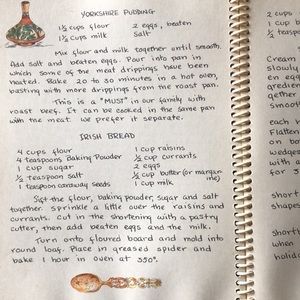 YORKSHIRE PUDDING
1½ cups flour 2 eggs, beaten
1½ cups milk Salt
Mix flour and milk together until smooth.
Add salt and beaten eggs. Pour into pan in
which some of the meat drippings have been
heated. Bake 20 to 30 minutes in a hot oven,
basting with more drippings from the roast pan.
This is a "MUST" in our family with
roast beef. It can be cooked in the same pan
with the meat. We prefer it separate.
IRISH BREAD
4 cups flour 1 cup raisins
4 teaspoons Baking Powder ½ cup currants
1 cup sugar 2 eggs
½ teaspoon salt ½ cup butter (or margar-
1 teaspoon caraway seeds 1 cup milk ine)
Sift the flour, baking powder, sugar and salt
together sprinkle a little over the raisins and
currants. Cut in the shortening with a pastry
cutter, then add beaten eggs and the milk.
Turn onto floured board and mold into
round loaf. Place in greased spider and
bake 1 hour in oven at 350°.
2 cups
1 cup
Cream
slowly
en egg
gredien
gether
Smooth
each
Flatten
on bo
wedges
with
for 3
short
shapes
shortl
when
holida